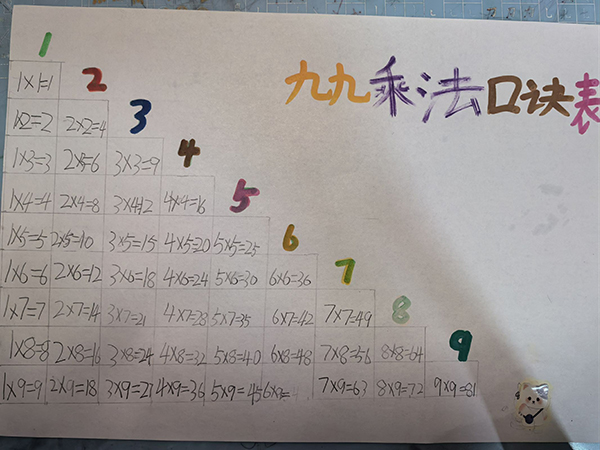 九九乘法口诀表
1
1×1=1 2
1×2=2 2×2=4 3
1×3=3 2×3=6 3×3=9 4
1×4=4 2×4=8 3×4=12 4×4=16 5
1×5=5 2×5=10 3×5=15 4×5=20 5×5=25 6
1×6=6 2×6=12 3×6=18 4×6=24 5×6=30 6×6=36 7
1×7=7 2×7=14 3×7=21 4×7=28 5×7=35 6×7=42 7×7=49 8
1×8=8 2×8=16 3×8=24 4×8=32 5×8=40 6×8=48 7×8=56 8×8=64 9
1×9=9 2×9=18 3×9=27 4×9=36 5×9=45 6×9= 7×9=63 8×9=72 9×9=81